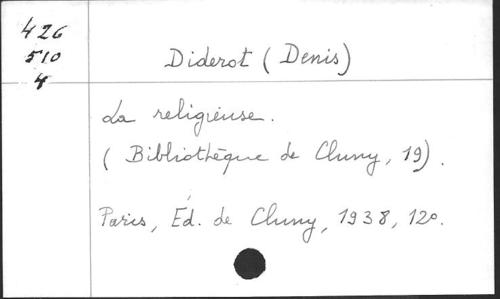 426
510
4
Diderot (Denis)
La religieuse.
(Bibliothèque de Cluny, 19).
Paris, Éd. de Cluny, 1938, 12º.